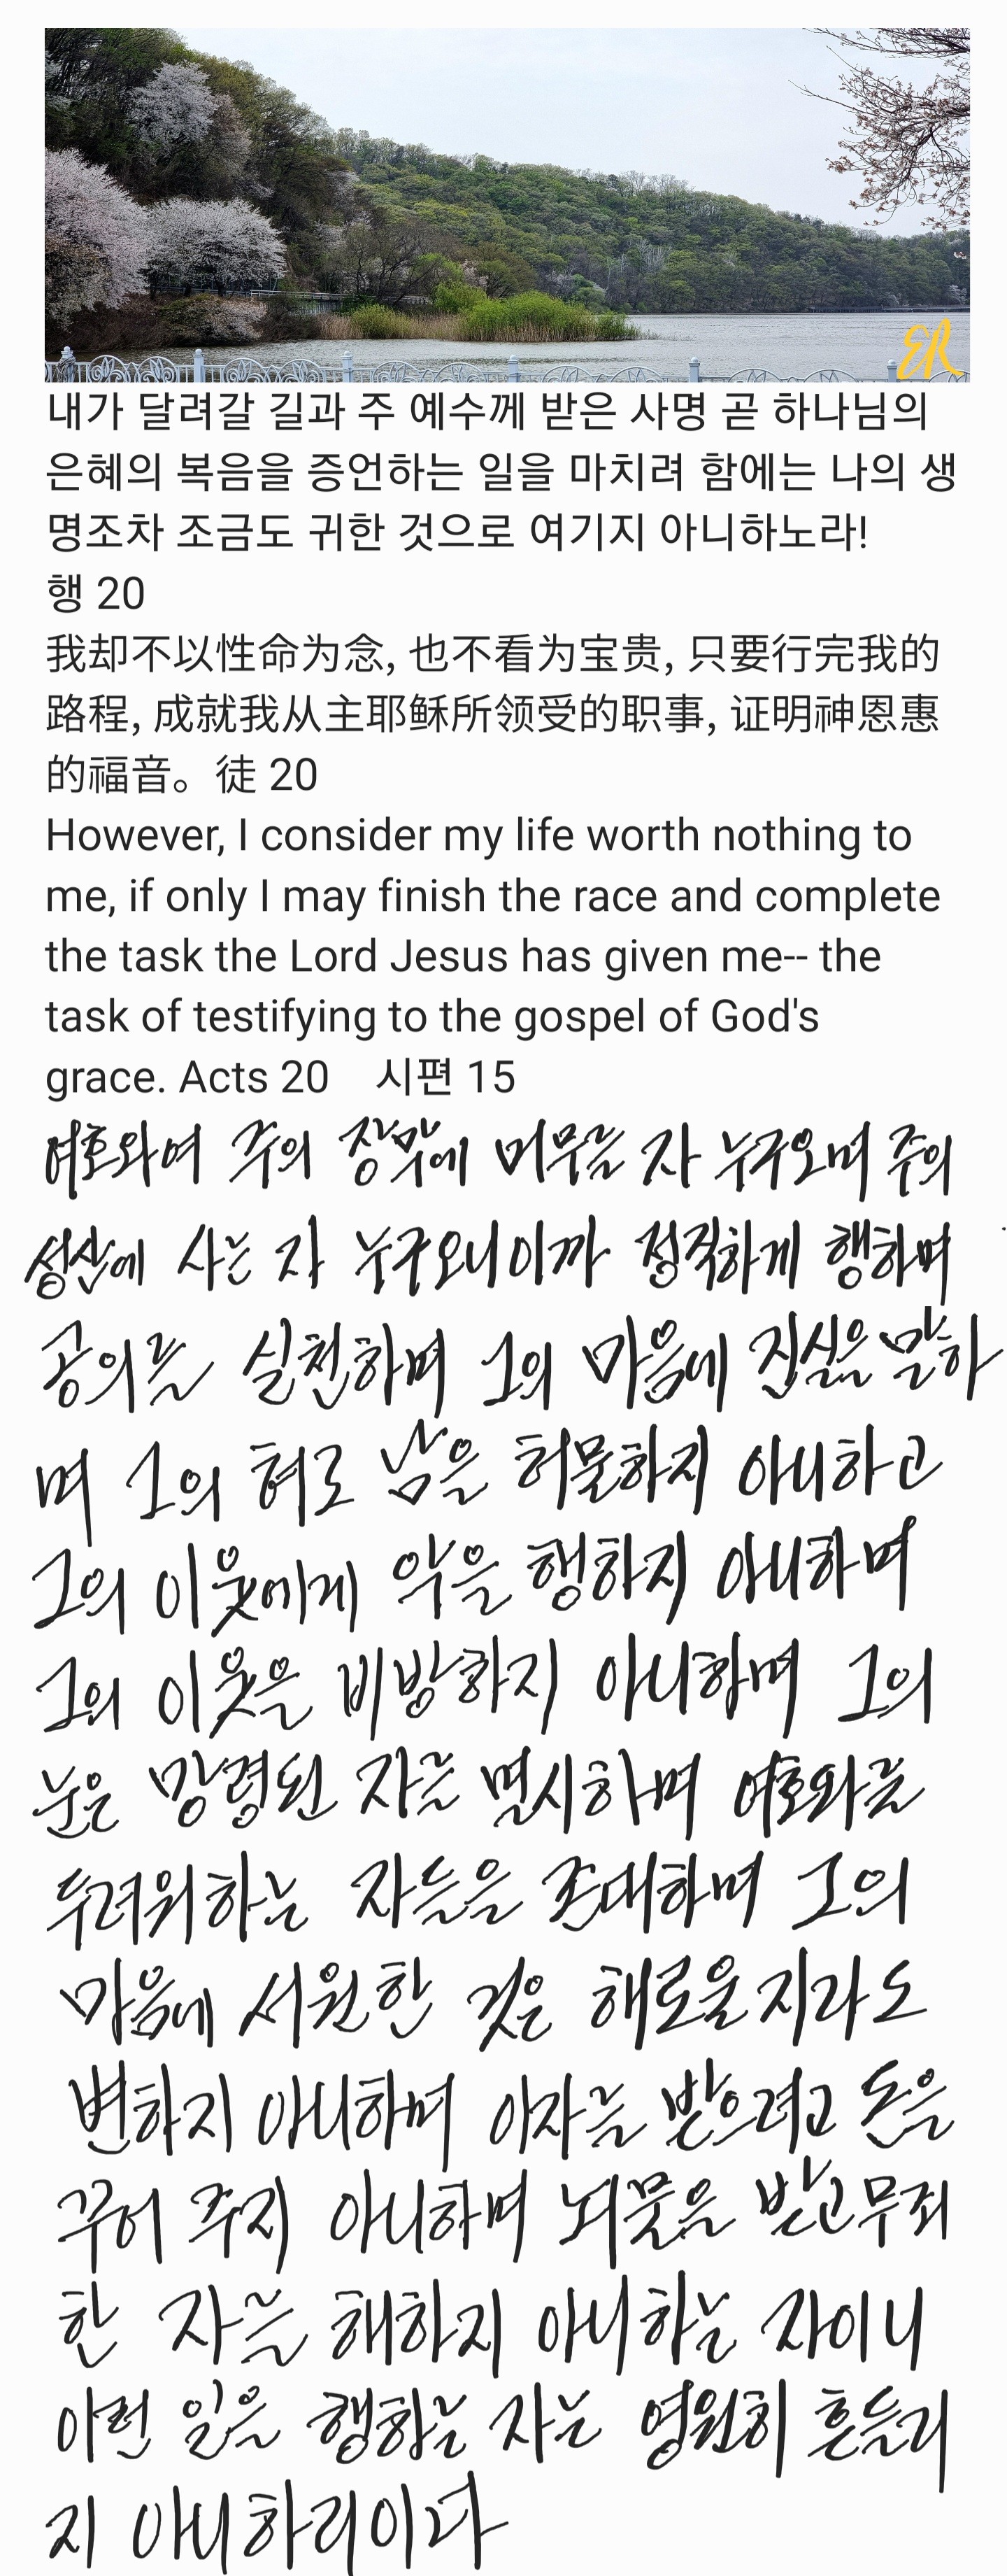 ER
내가 달려갈 길과 주 예수께 받은 사명 곧 하나님의
은혜의 복음을 증언하는 일을 마치려 함에는 나의 생
명조차 조금도 귀한 것으로 여기지 아니하노라!
행 20
我却不以性命为念, 也不看为宝贵, 只要行完我的
路程, 成就我从主耶稣所领受的职事, 证明神恩惠
的福音。徒 20
However, I consider my life worth nothing to
me, if only I may finish the race and complete
the task the Lord Jesus has given me-- the
task of testifying to the gospel of God's
grace. Acts 20 시편 15
여호와여 주의 장막에 머무를 자 누구오며 주의
성산에 사는 자 누구오니이까 정직하게 행하며
공의를 실천하며 그의 마음에 진실을 말하
며 그의 혀로 남을 허물하지 아니하고
그의 이웃에게 악을 행하지 아니하며
그의 이웃을 비방하지 아니하며 그의
눈은 망령된 자를 멸시하며 여호와를
두려워하는 자들을 존대하며 그의
마음에 서원한 것은 해로울지라도
변하지 아니하며 이자를 받으려고 돈을
꾸어 주지 아니하며 뇌물을 받고 무죄
한 자를 해하지 아니하는 자이니
이런 일을 행하는 자는 영원히 흔들리
지 아니하리이다